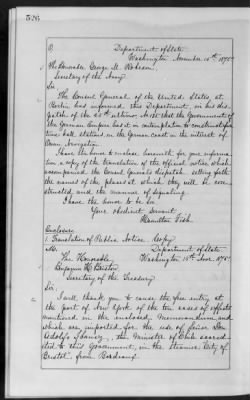 526
Department of State
Washington November 15th 1875
The Honorable George M. Robeson,
Secretary of the Navy
Sir
The Consul General of the United States at
Berlin has informed this Department, in his dis-
patch of the 25th ultimo that the Government of
the German Empire has in contemplation to construct
time ball stations on the German coast in the interest of
Ocean Navigation.
I have the honor to enclose herewith for your informa-
tion a copy of the translation of the official notice which
accompanied the Consul General's dispatch setting forth
the names of the places at which they will be con-
structed, and the manner of signaling
I have the honor to be Sir
Your obedient servant
Hamilton Fish.
Enclosure
1. Translation of Public Notice. Copy
Department of State
The Honorable Washington 15th Nov. 1875
Benjamin H. Bristow
Secretary of the Treasury
Sir:
I will thank you to cause the free entry at
the port of New York of the ten cases of effects
mentioned in the enclosed Memorandum and
which are imported for the use of Señor Don
Adolfo Ibañez, the Minister of Chile accred-
ited to this Government, in the Steamer "City of
Bristol" from Bordeaux.